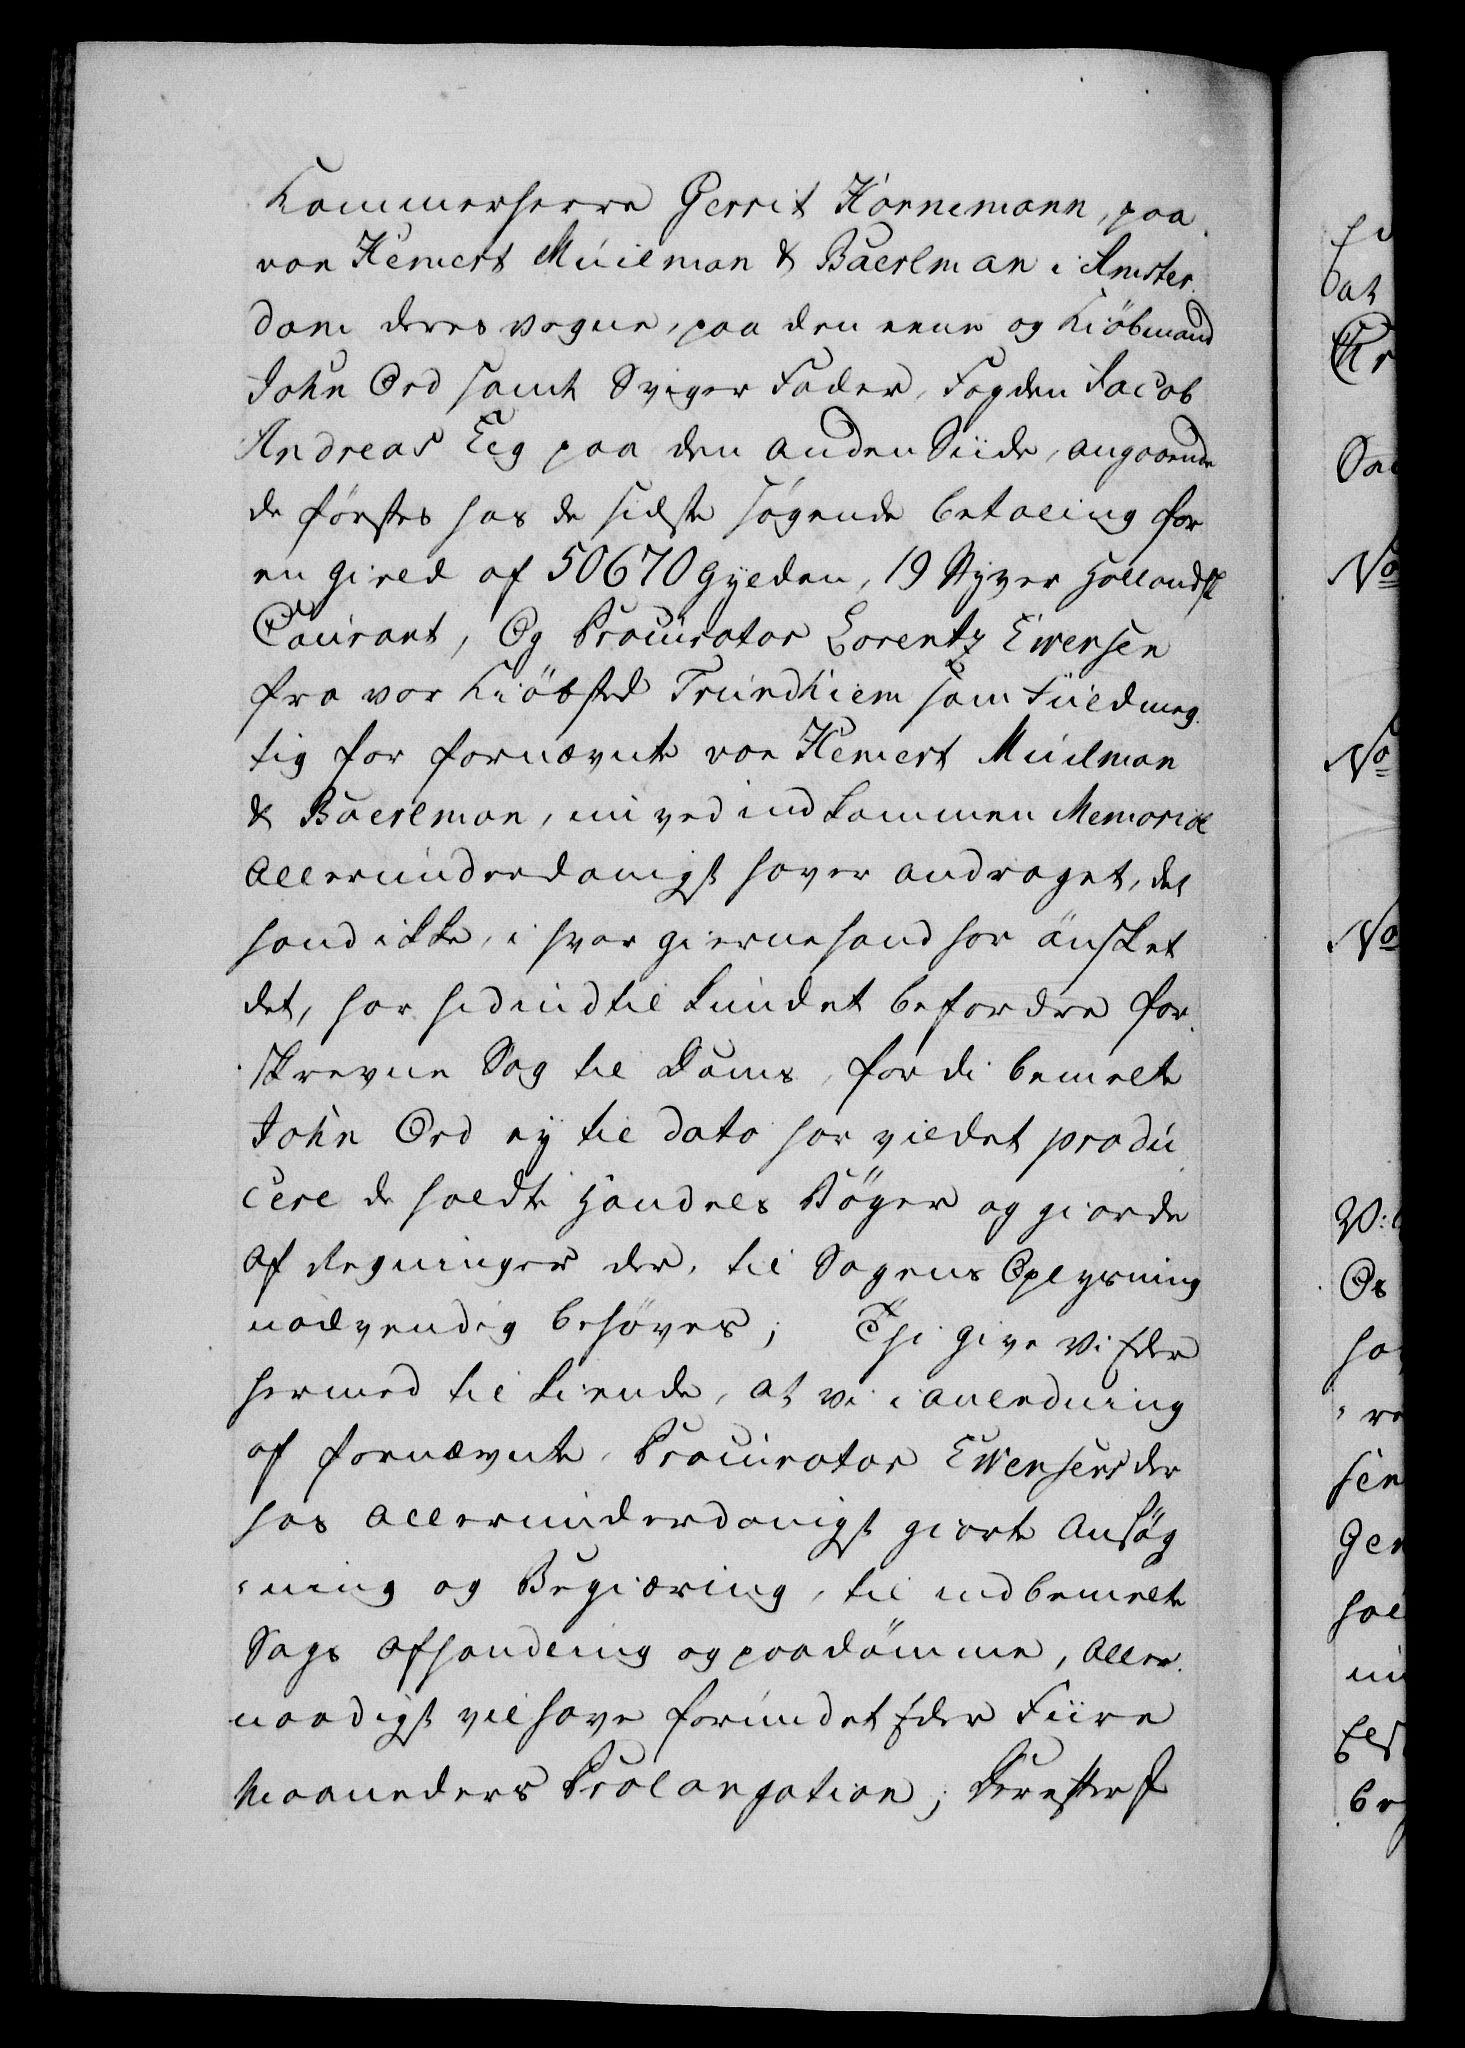 Kammerherre Gerrit Hornemann, paa
von Hemert Muilman & Baerlman i Amster-
dam deres vegne, paa den eene og Kiöbmand
John Ord samt Sviger Fader, Fogden Jacob
Andreas Eeg paa den anden Siide, angaaende
de førstes hos de sidste søgende betaling for
en gield af 50670 gylden, 19 Styver hollandsk
Courant, Og Procurator Lorentz Ewensen
fra vor Kiöbsted Trundhiem som Fuldmæg-
tig for fornævnte von Hemert Muilman
& Baerlman, nu ved indkommen Memorial
allerunderdanigst haver andraget, det
hand ikke, i hvor gierne hand har önsket
det, har hidindtil kundet befordre for-
skrevne Sag til Doms, fordi bemelte
John Ord ey til dato har vildet produ-
cere de holdte Handels Böger og giorde
Afregninger der, til Sagens Oplysning
nødvendig behöves; Thi give vi Eder
hermed til kiende, at vi i anledning
af fornævnte Procurator Ewensens der
hos allerunderdanigst giorte Ansög-
ning og Begiæring, til indbemelte
Sags afhandling og paadömme, aller-
naadigst vil have forundet Eder Fiire
Maaneders Prolongation; Derefter I